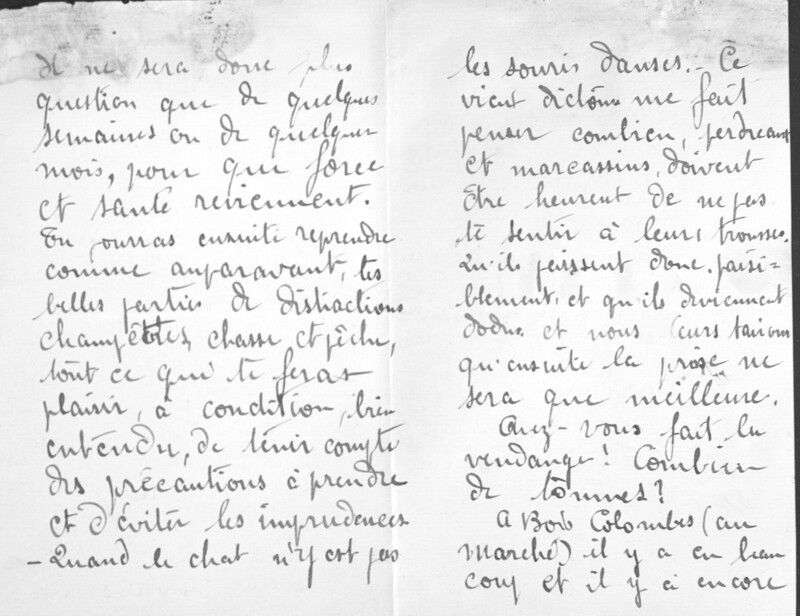 Il ne sera donc plus
question que de quelques
semaines ou de quelques
mois, pour que force
et santé reviennent.
Tu pourras ensuite reprendre
comme auparavant, tes
belles parties de distractions
champêttres, chasse et pêche,
tout ce qui te feras
plaisir, à condition, bien
entendu, de tenir compte
des précautions à prendre
et d'éviter les imprudences
- Quand le chat n'y est pas
les souris danses. - Ce
vieux dictôn me fait
penser combien, perdreaux
et marcassins, doivent
être heureux de ne pas
te sentir à leurs trousses.
Qu'ils paissent donc paisi=
blement et qu'ils deviennent
dodus et nous leurs
qu'ensuite la prose ne
sera que meilleure.
Avez-vous fait la
vendange! Combien
de tonnes?
A Bois Colombes (au
marché) il y a eu beau
coup et il y a encore